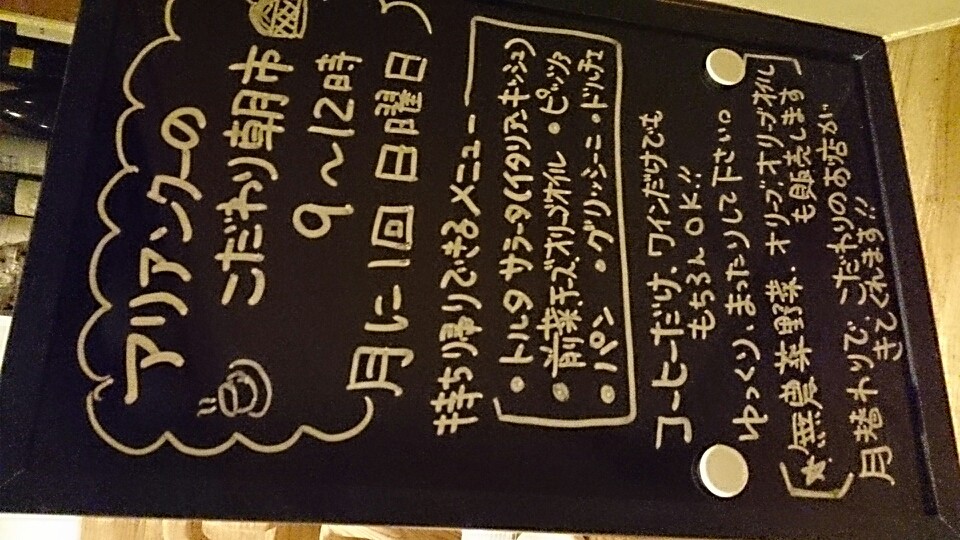 アリアンクーの
こだわり朝市
9〜12時
月に一回日曜日
持ち帰りできるメニュー
・トルタサラータ(イタリアキッシュ)
・前菜、チーズ、オリーブオイル ・ピッツァ
・パン ・グリッシーニ ・ドルチェ
コーヒーだけ、ワインだけでも
もちろんOK!!
ゆっくり、まったりして下さい。
☆無農薬野菜、オリーブ、オリーブオイル
も販売します
月替わりで、こだわりのお店が
きてくれます!!